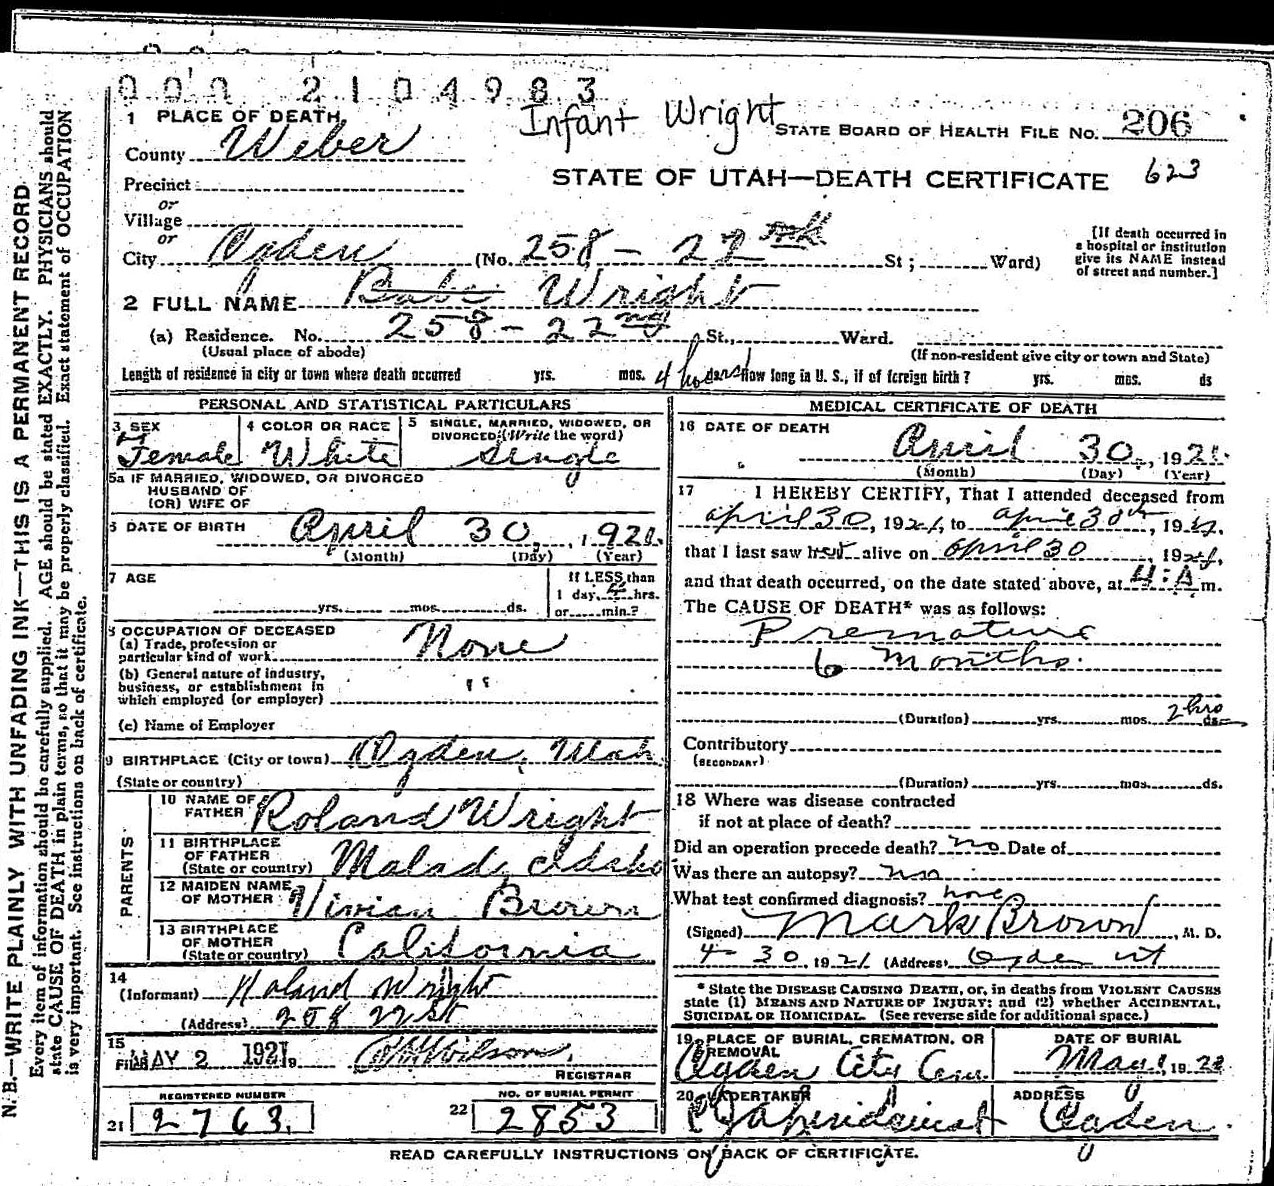 0 0 0 2 1 0 4 9 8 3
Infant Wright
STATE BOARD OF HEALTH FILE NO. 206
623
STATE OF UTAH—DEATH CERTIFICATE
1 PLACE OF DEATH
County Weber
Precinct
or
Village
or
City Ogden (No. 258 - 22 St; Ward)
[If death occurred in
a hospital or institution
give its NAME instead
of street and number.]
2 FULL NAME Babe Wright
(a) Residence. No. 258 - 22nd St., Ward.
(Usual place of abode) (If non-resident give city or town and State)
Length of residence in city or town where death occurred yrs. mos. 4 hours How long in U. S., if of foreign birth? yrs. mos. ds
PERSONAL AND STATISTICAL PARTICULARS
3 SEX Female
4 COLOR OR RACE White
5 SINGLE, MARRIED, WIDOWED, OR
DIVORCED (Write the word) Single
5a IF MARRIED, WIDOWED, OR DIVORCED
HUSBAND OF
(OR) WIFE OF
6 DATE OF BIRTH April 30, 1921
(Month) (Day) (Year)
7 AGE yrs. mos. ds.
If LESS than
1 day, 4 hrs.
or min.?
8 OCCUPATION OF DECEASED
(a) Trade, profession or
particular kind of work None
(b) General nature of industry,
business, or establishment in
which employed (or employer) "
(c) Name of Employer
9 BIRTHPLACE (City or town) Ogden, Utah
(State or country)
PARENTS
10 NAME OF
FATHER Roland Wright
11 BIRTHPLACE
OF FATHER
(State or country) Malad, Idaho
12 MAIDEN NAME
OF MOTHER Vivian Brown
13 BIRTHPLACE
OF MOTHER
(State or country) California
14
(Informant) Roland Wright
(Address) 258 22 St
15
Filed MAY 2 1921 Wilson
REGISTRAR
REGISTERED NUMBER
21 2763
NO. OF BURIAL PERMIT
22 2853
MEDICAL CERTIFICATE OF DEATH
16 DATE OF DEATH April 30, 1921
(Month) (Day) (Year)
17 I HEREBY CERTIFY, That I attended deceased from
april 30, 1921, to april 30th, 1921,
that I last saw her alive on april 30 1921,
and that death occurred, on the date stated above, at 4:A m.
The CAUSE OF DEATH* was as follows:
Premature
6 months.
(Duration) yrs. mos. 2 hrs ds.
Contributory
(SECONDARY)
(Duration) yrs. mos. ds.
18 Where was disease contracted
if not at place of death?
Did an operation precede death? no Date of
Was there an autopsy? no
What test confirmed diagnosis? none
(Signed) Mark Brown, M. D.
4-30, 1921 (Address) Ogden ut
* State the DISEASE CAUSING DEATH, or, in deaths from VIOLENT CAUSES
state (1) MEANS AND NATURE OF INJURY; and (2) whether ACCIDENTAL,
SUICIDAL OR HOMICIDAL. (See reverse side for additional space.)
19 PLACE OF BURIAL, CREMATION, OR
REMOVAL
Ogden City Cem.
DATE OF BURIAL
May 1, 1921
20 UNDERTAKER
ADDRESS
Ogden
READ CAREFULLY INSTRUCTIONS ON BACK OF CERTIFICATE.
N. B.—WRITE PLAINLY WITH UNFADING INK—THIS IS A PERMANENT RECORD
Every item of information should be carefully supplied. AGE should be stated EXACTLY. PHYSICIANS should
state CAUSE OF DEATH in plain terms, so that it may be properly classified. Exact statement of OCCUPATION
is very important. See instructions on back of certificate.